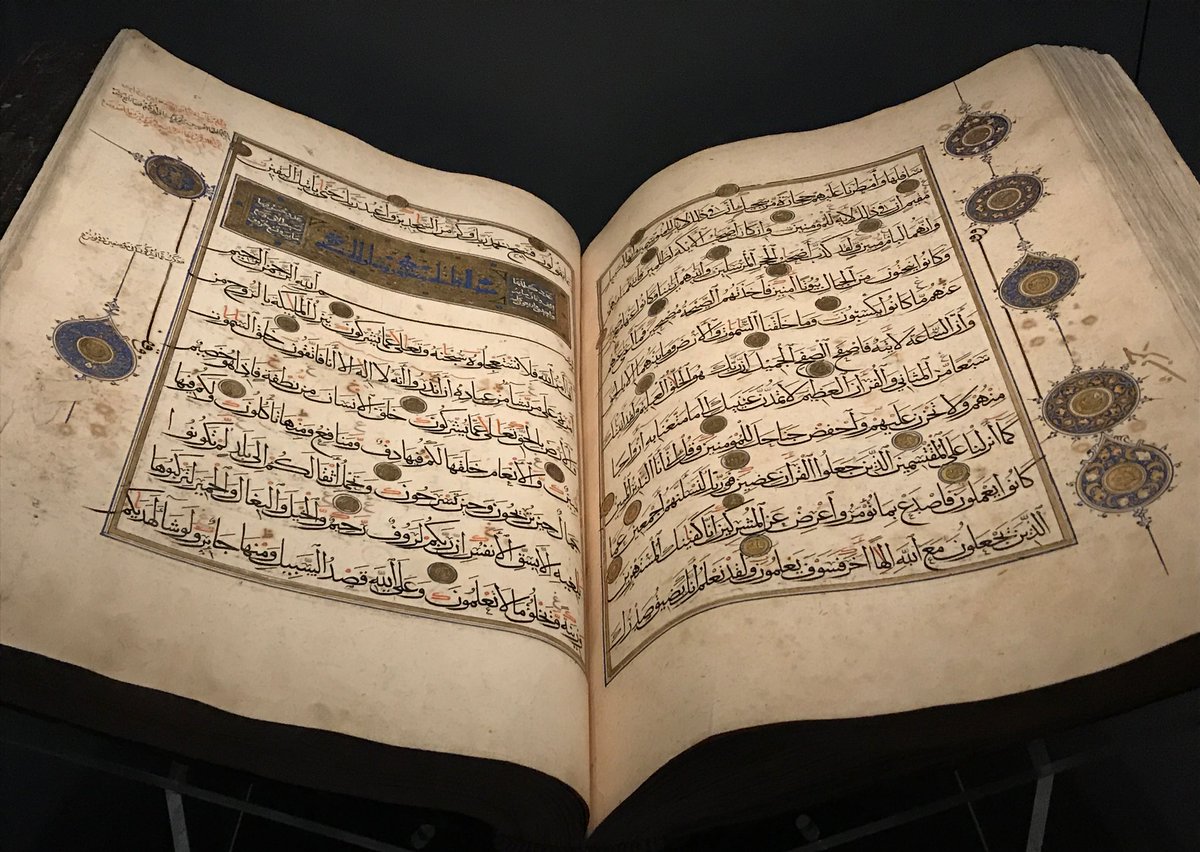 سافلها وأمطرنا عليهم حجارة من سجيل إن في ذلك لآيات للمتوسمين وإنها لبسبيل
مقيم إن في ذلك لآية للمؤمنين وإن كان أصحاب الأيكة لظالمين فانتقمنا منهم
وإنهما لبإمام مبين ولقد كذب أصحاب الحجر المرسلين وآتيناهم آياتنا فكانوا عنها معرضين
وكانوا ينحتون من الجبال بيوتا آمنين فأخذتهم الصيحة مصبحين فما أغنى
عنهم ما كانوا يكسبون وما خلقنا السموات والأرض وما بينهما إلا بالحق
وإن الساعة لآتية فاصفح الصفح الجميل إن ربك هو الخلاق العليم ولقد آتيناك
سبعا من المثاني والقرآن العظيم لا تمدن عينيك إلى ما متعنا به أزواجا
منهم ولا تحزن عليهم واخفض جناحك للمؤمنين وقل إني أنا النذير المبين
كما أنزلنا على المقتسمين الذين جعلوا القرآن عضين فوربك لنسألنهم أجمعين عما
كانوا يعملون فاصدع بما تؤمر وأعرض عن المشركين إنا كفيناك المستهزئين
الذين يجعلون مع الله إلها آخر فسوف يعلمون ولقد نعلم أنك يضيق صدرك
بما يقولون فسبح بحمد ربك وكن من الساجدين واعبد ربك حتى يأتيك اليقين
بسم الله الرحمن الرحيم
أتى أمر الله فلا تستعجلوه سبحانه وتعالى عما يشركون ينزل الملائكة بالروح من
أمره على من يشاء من عباده أن أنذروا أنه لا إله إلا أنا فاتقون خلق السموات
والأرض بالحق تعالى عما يشركون خلق الإنسان من نطفة فإذا هو خصيم
مبين والأنعام خلقها لكم فيها دفء ومنافع ومنها تأكلون ولكم فيها
جمال حين تريحون وحين تسرحون وتحمل أثقالكم إلى بلد لم تكونوا
بالغيه إلا بشق الأنفس إن ربكم لرءوف رحيم والخيل والبغال والحمير لتركبوها
وزينة ويخلق ما لا تعلمون وعلى الله قصد السبيل ومنها جائر ولو شاء لهديكم